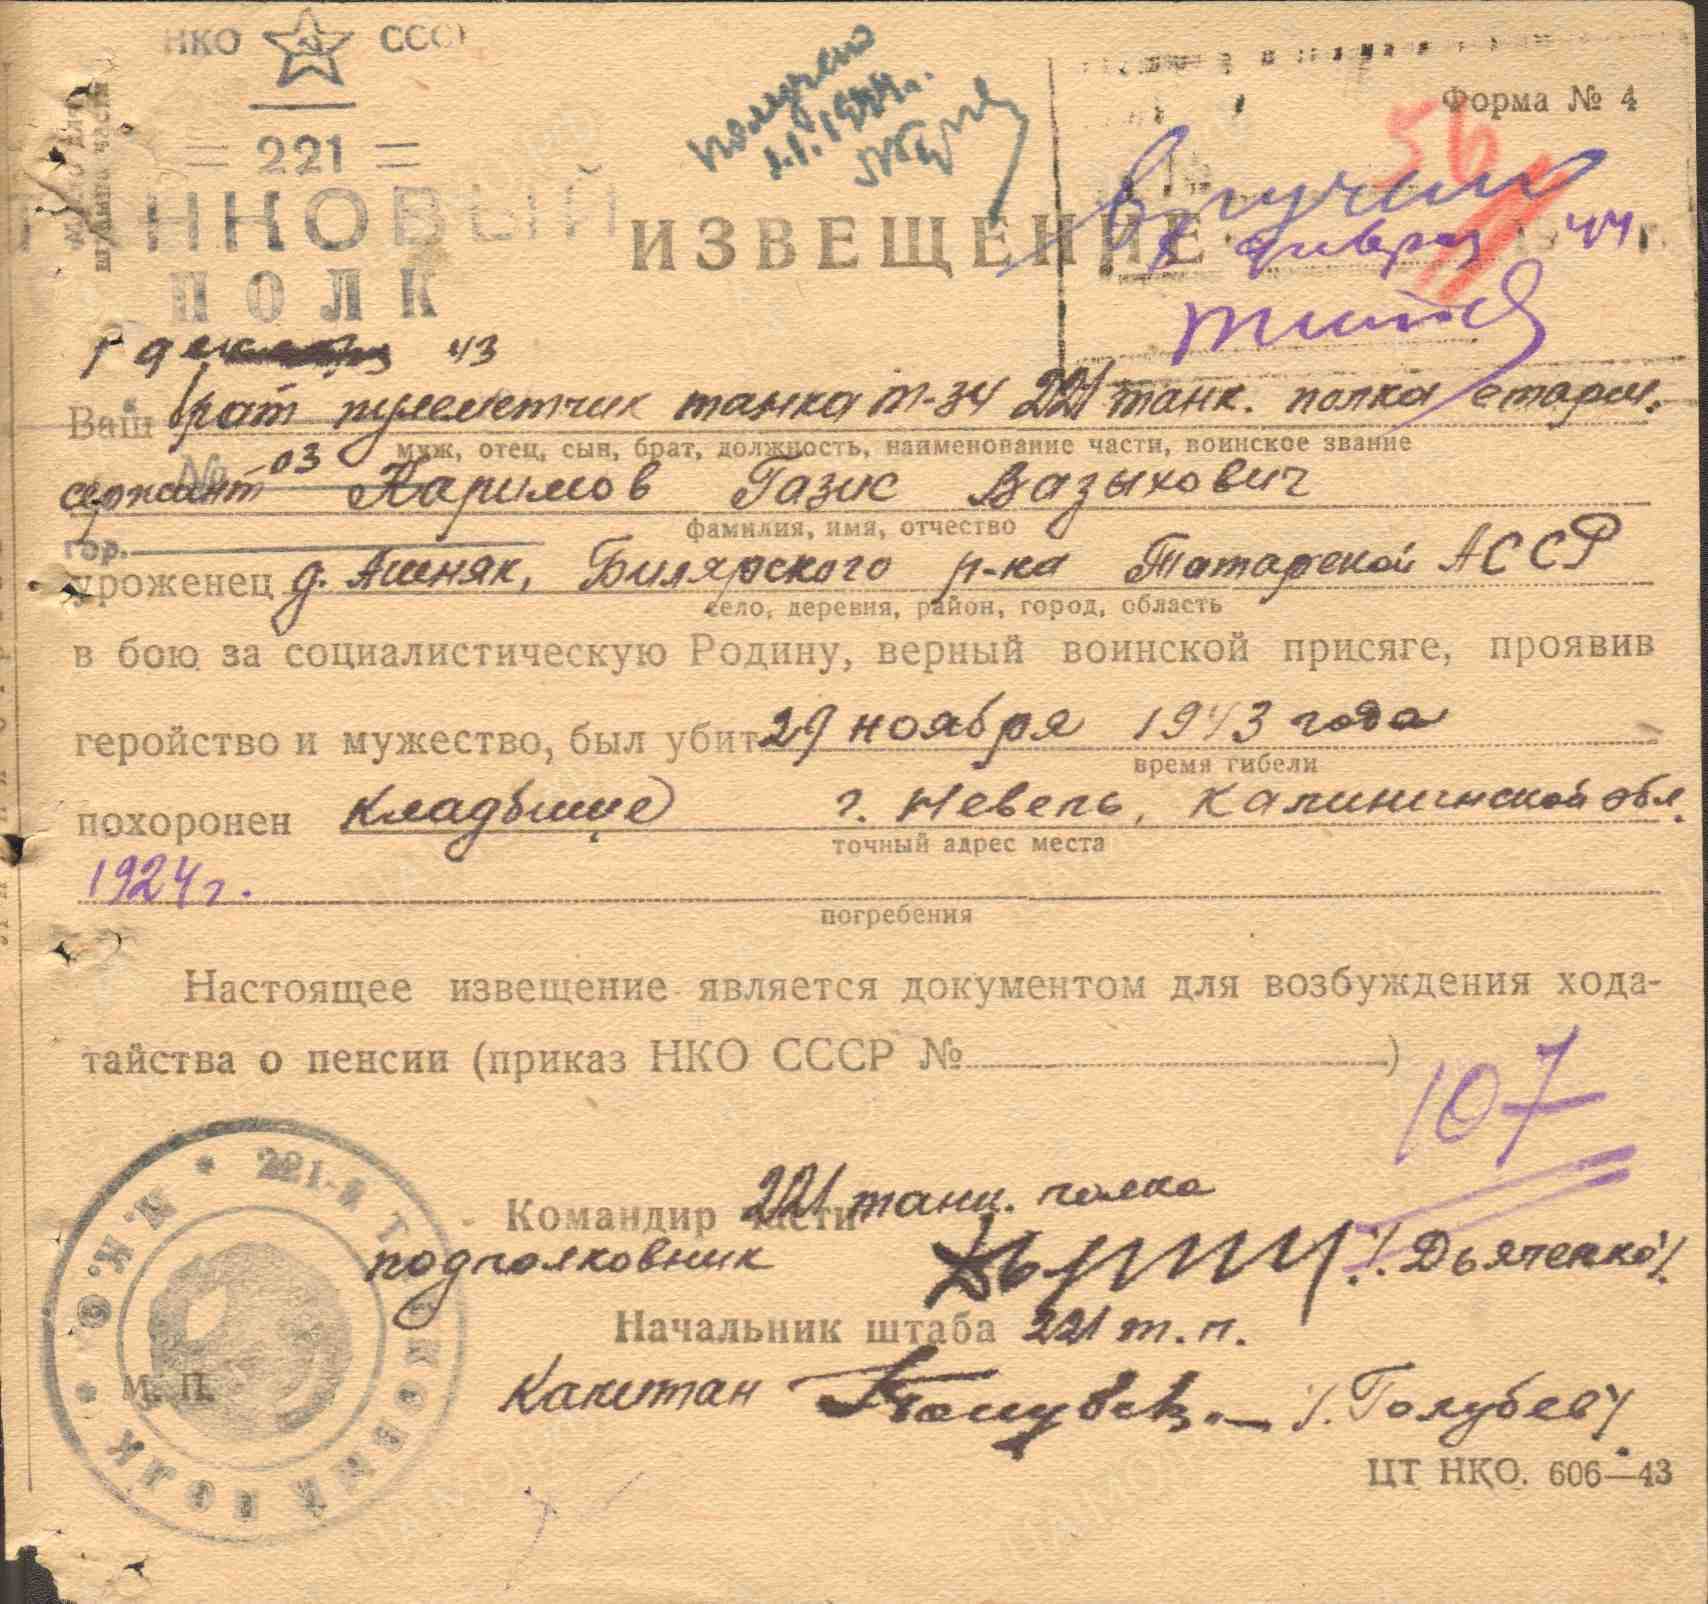 НКО СССР
= 221 =
ТАНКОВЫЙ
ПОЛК
декабря 43
№ 03
гор.
получено
1.1.1944.
Форма № 4
56
Вручить
января 44 г.
ИЗВЕЩЕНИЕ
Ваш брат пулеметчик танка т-34 221 танк. полка старш.
муж, отец, сын, брат, должность, наименование части, воинское звание
сержант Каримов Газис Вазыхович
фамилия, имя, отчество
уроженец д. Ашняк, Билярского р-ка Татарской АССР
село, деревня, район, город, область
в бою за социалистическую Родину, верный воинской присяге, проявив
геройство и мужество, был убит 29 ноября 1943 года
время гибели
похоронен кладбище г. Невель, Калининской обл.
точный адрес места
1924 г.
погребения
Настоящее извещение является документом для возбуждения хода-
тайства о пенсии (приказ НКО СССР № )
107
Командир части 221 танк. полка
подполковник /Дьяченко/
Начальник штаба 221 т. п.
Капитан /Голубев/
М. П.
Н.К.О. * 221-Й ТАНКОВЫЙ ПОЛК *
ЦТ НКО. 606—43